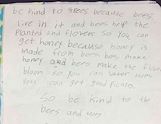 be kind to trees because bees
live in it and bees help the
Planted and flowers so you can
get honey because honey is
made from bees bees make
honey and bees make the
bloom so you can
you can get good
So be kind to the
bees and